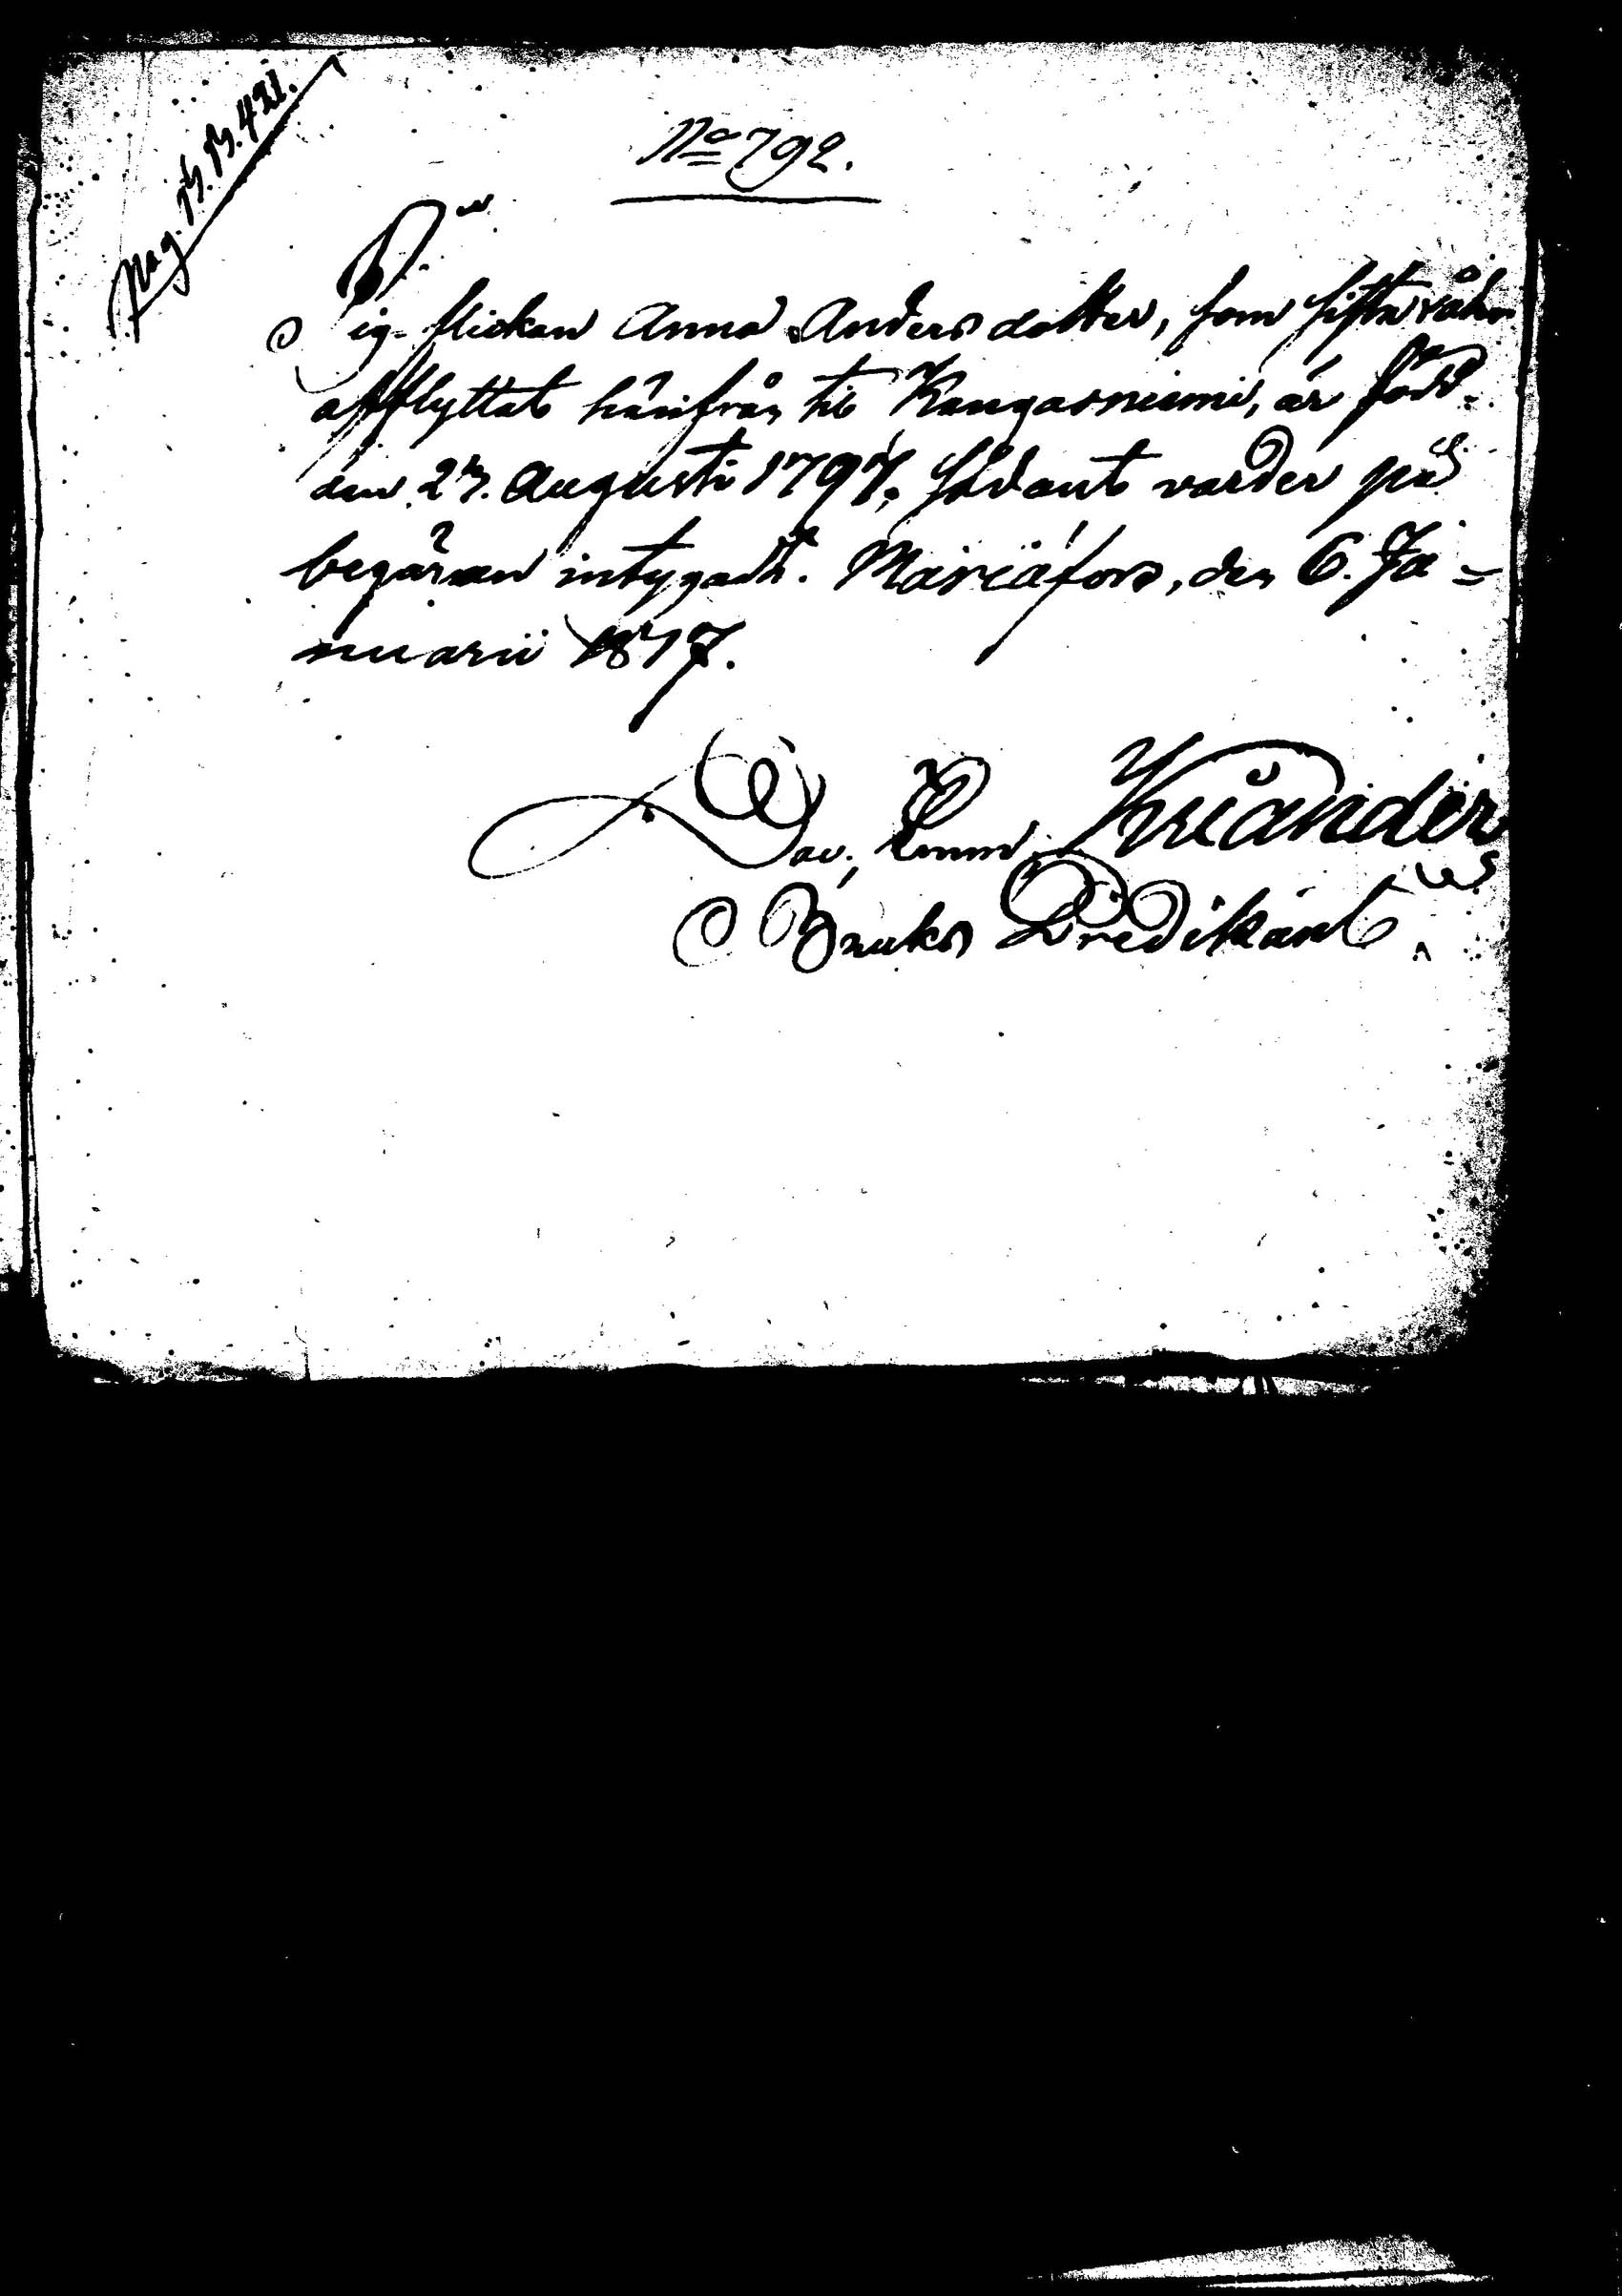 Pag. B. B. 421.
No 792.
Pigflickan Anna Andersdotter, som sistn
afflyttat härifrån til Kangasniemi, är född
den 27. Augusti 1797, sådant varder på
begäran intygadt. Mariäfors, den 6. Ja=
nuarii 1817.
Dav. Emm. Kiliander
Bruks Predikant.